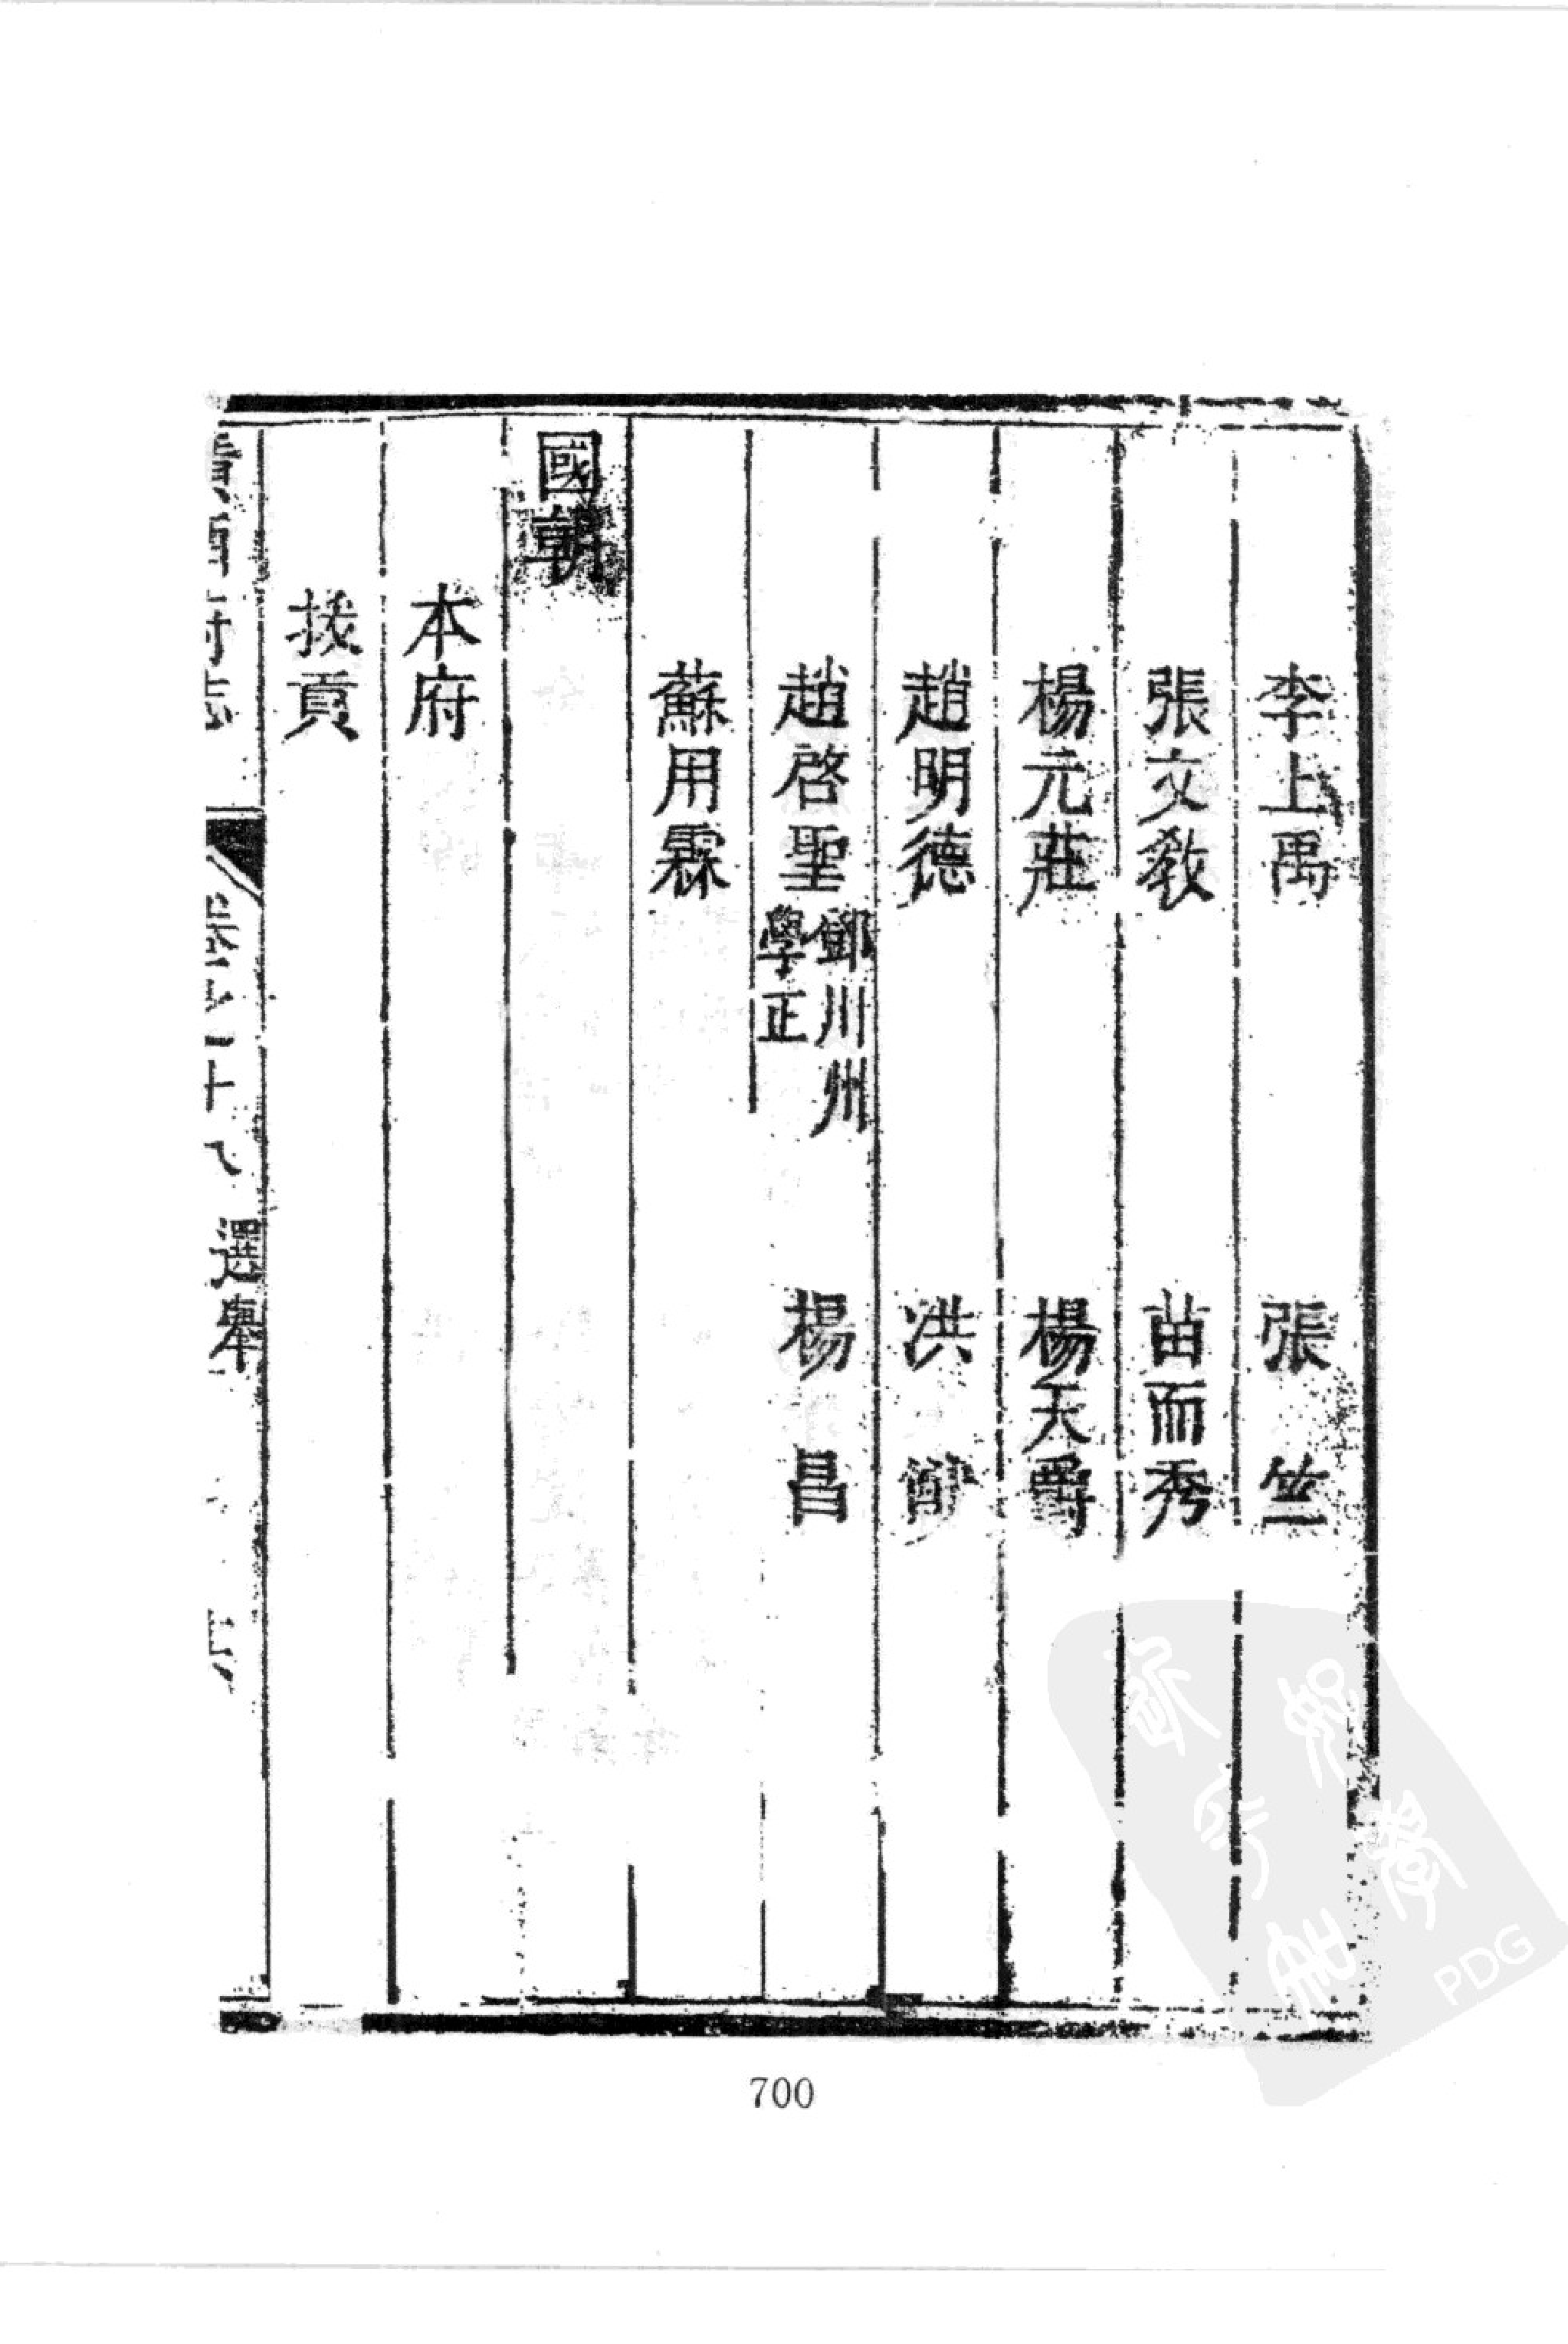 李上禹　張竺
張文教　苗而秀
楊元莊　楊天爵
趙明德　洪
趙啓聖鄧川州學正　楊昌
蘇用霖
國朝
本府
拔貢
選舉
700
PDG